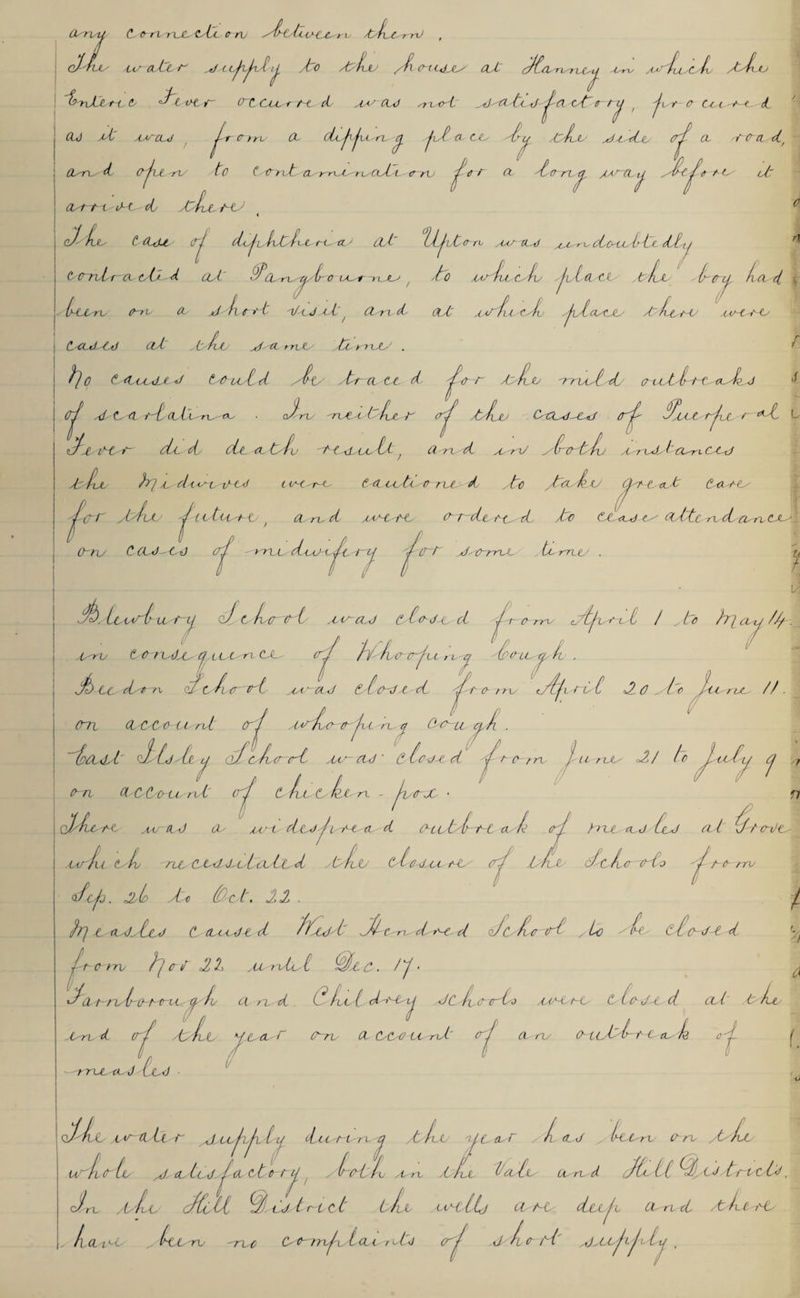 any connection between them.
The water supply to the house at Hanney in which the
Enteric Fever occurred was not satisfactory, pro curred
as it was, from a dipping place by the side of a road,
and open to contamination for a long way before it
arrived there.
The case of diphtheria at Upton was undoubtedly
contracted at Pangbourne, to which place the boy had
been on a short visit, and at which place there were
cases at the same time.
No causes could be traced for the mild outbreaks
of scarlatina. In neither of the cases of Puerperal
Fever did death result, and in both instances
the Midwives were cautioned to take great care
for the future, and were ordered to cease attendance
on cases of midwifery for some time.
Blewbury School was closed from April 1 to May 14.
in consequence of Whooping Cough.
Beedon School was closed from April 20 to June 11.
on account of whooping cough.
East Ilsley School was closed from June 21 to July 9
on account of chicken-pox.
There was a widespread outbreak of measles at Grove
which necessitated the closure of the Schools from
Sep. 26 to Oct. 22.
Measles caused West Hendred School to be closed
from Nov 22 until Dec. 17.
Farnborough and Childrey Schools were closed at the
end of the year on account of an outbreak of
measles.
The water supply during the year has been on the
whole satisfactory, both in the Vale and Hill Districts.
In the Hill District the wells are deep and there
have been no complaints of short supply.